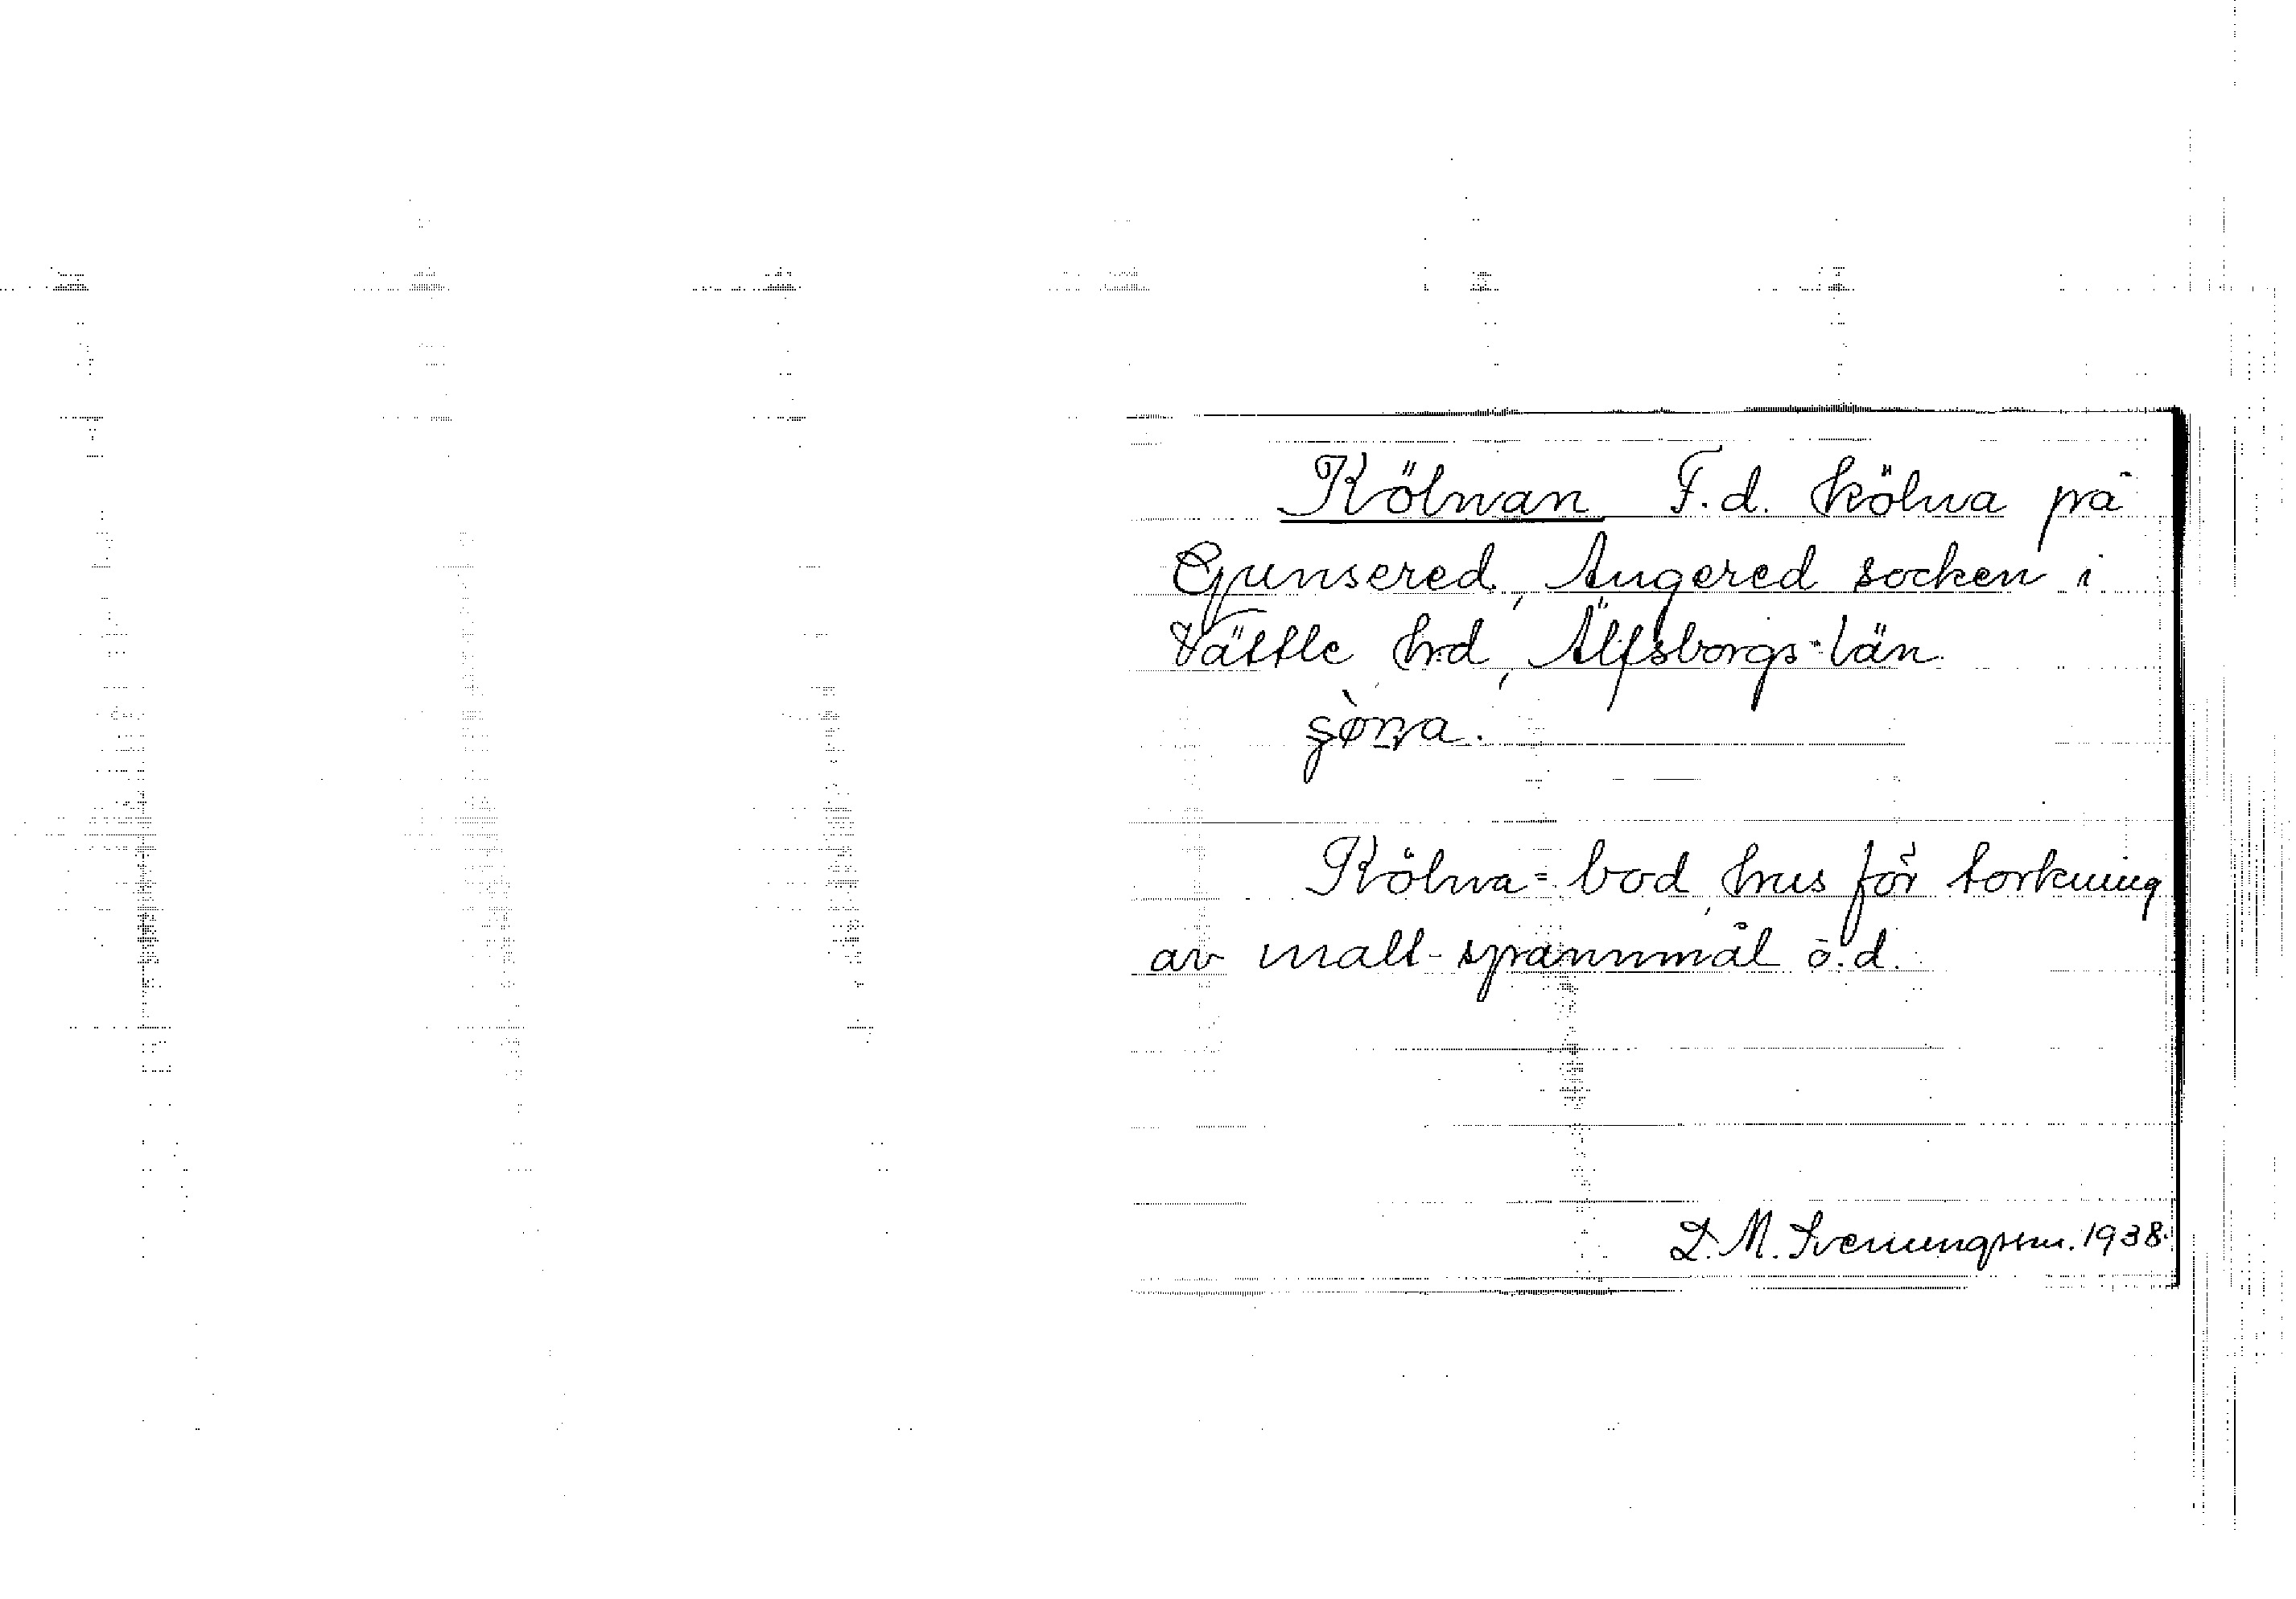 Kölnan F.d. kölna på
Gunsered, Angered socken i
Vättle hrd, Älfsborgs-län.
Kölna = bod, hus för torkning
av malt-spannmål o.d.
D. M. Svenungsson. 1938.